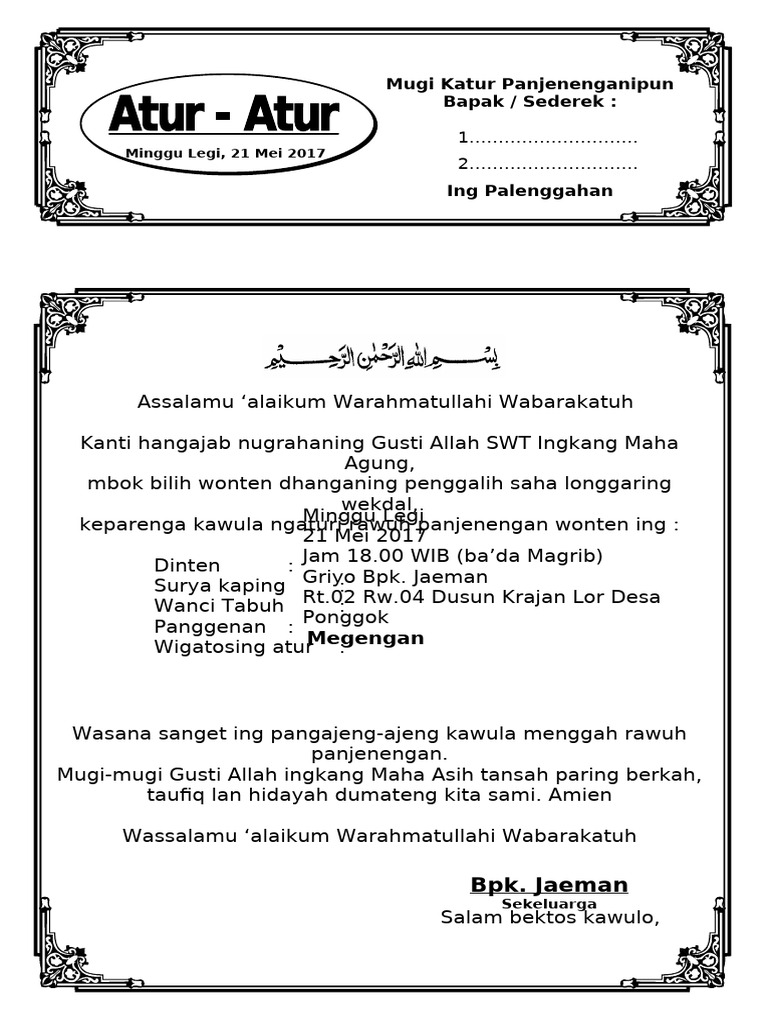 Atur - Atur
Minggu Legi, 21 Mei 2017
Mugi Katur Panjenenganipun
Bapak / Sederek :
1.............................
2.............................
Ing Palenggahan
بِسْمِ اللهِ الرَّحْمٰنِ الرَّحِيْمِ
Assalamu ‘alaikum Warahmatullahi Wabarakatuh
Kanti hangajab nugrahaning Gusti Allah SWT Ingkang Maha
Agung,
mbok bilih wonten dhanganing penggalih saha longgaring
wekdal,
keparenga kawula ngaturi rawuh panjenengan wonten ing :
Minggu Legi
21 Mei 2017
Jam 18.00 WIB (ba’da Magrib)
Griyo Bpk. Jaeman
Rt.02 Rw.04 Dusun Krajan Lor Desa
Ponggok
Megengan
Dinten :
Surya kaping :
Wanci Tabuh :
Panggenan :
Wigatosing atur :
Wasana sanget ing pangajeng-ajeng kawula menggah rawuh
panjenengan.
Mugi-mugi Gusti Allah ingkang Maha Asih tansah paring berkah,
taufiq lan hidayah dumateng kita sami. Amien
Wassalamu ‘alaikum Warahmatullahi Wabarakatuh
Bpk. Jaeman
Sekeluarga
Salam bektos kawulo,